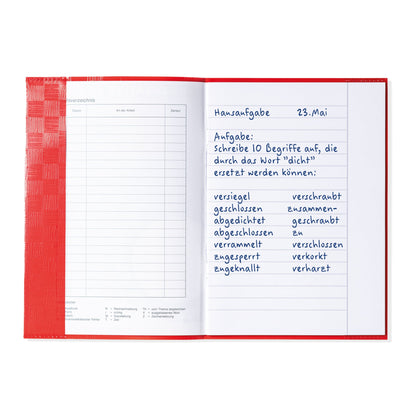 nverzeichnis
Datum Art der Arbeit
Hausaufgabe 23. Mai
Aufgabe:
Schreibe 10 Begriffe auf, die
durch das Wort "dicht"
ersetzt werden können:
versiegel verschraubt
geschlossen zusammen-
abgedichtet geschraubt
abgeschlossen zu
verrammelt verschlossen
zugesperrt verkorkt
zugeknallt verharzt